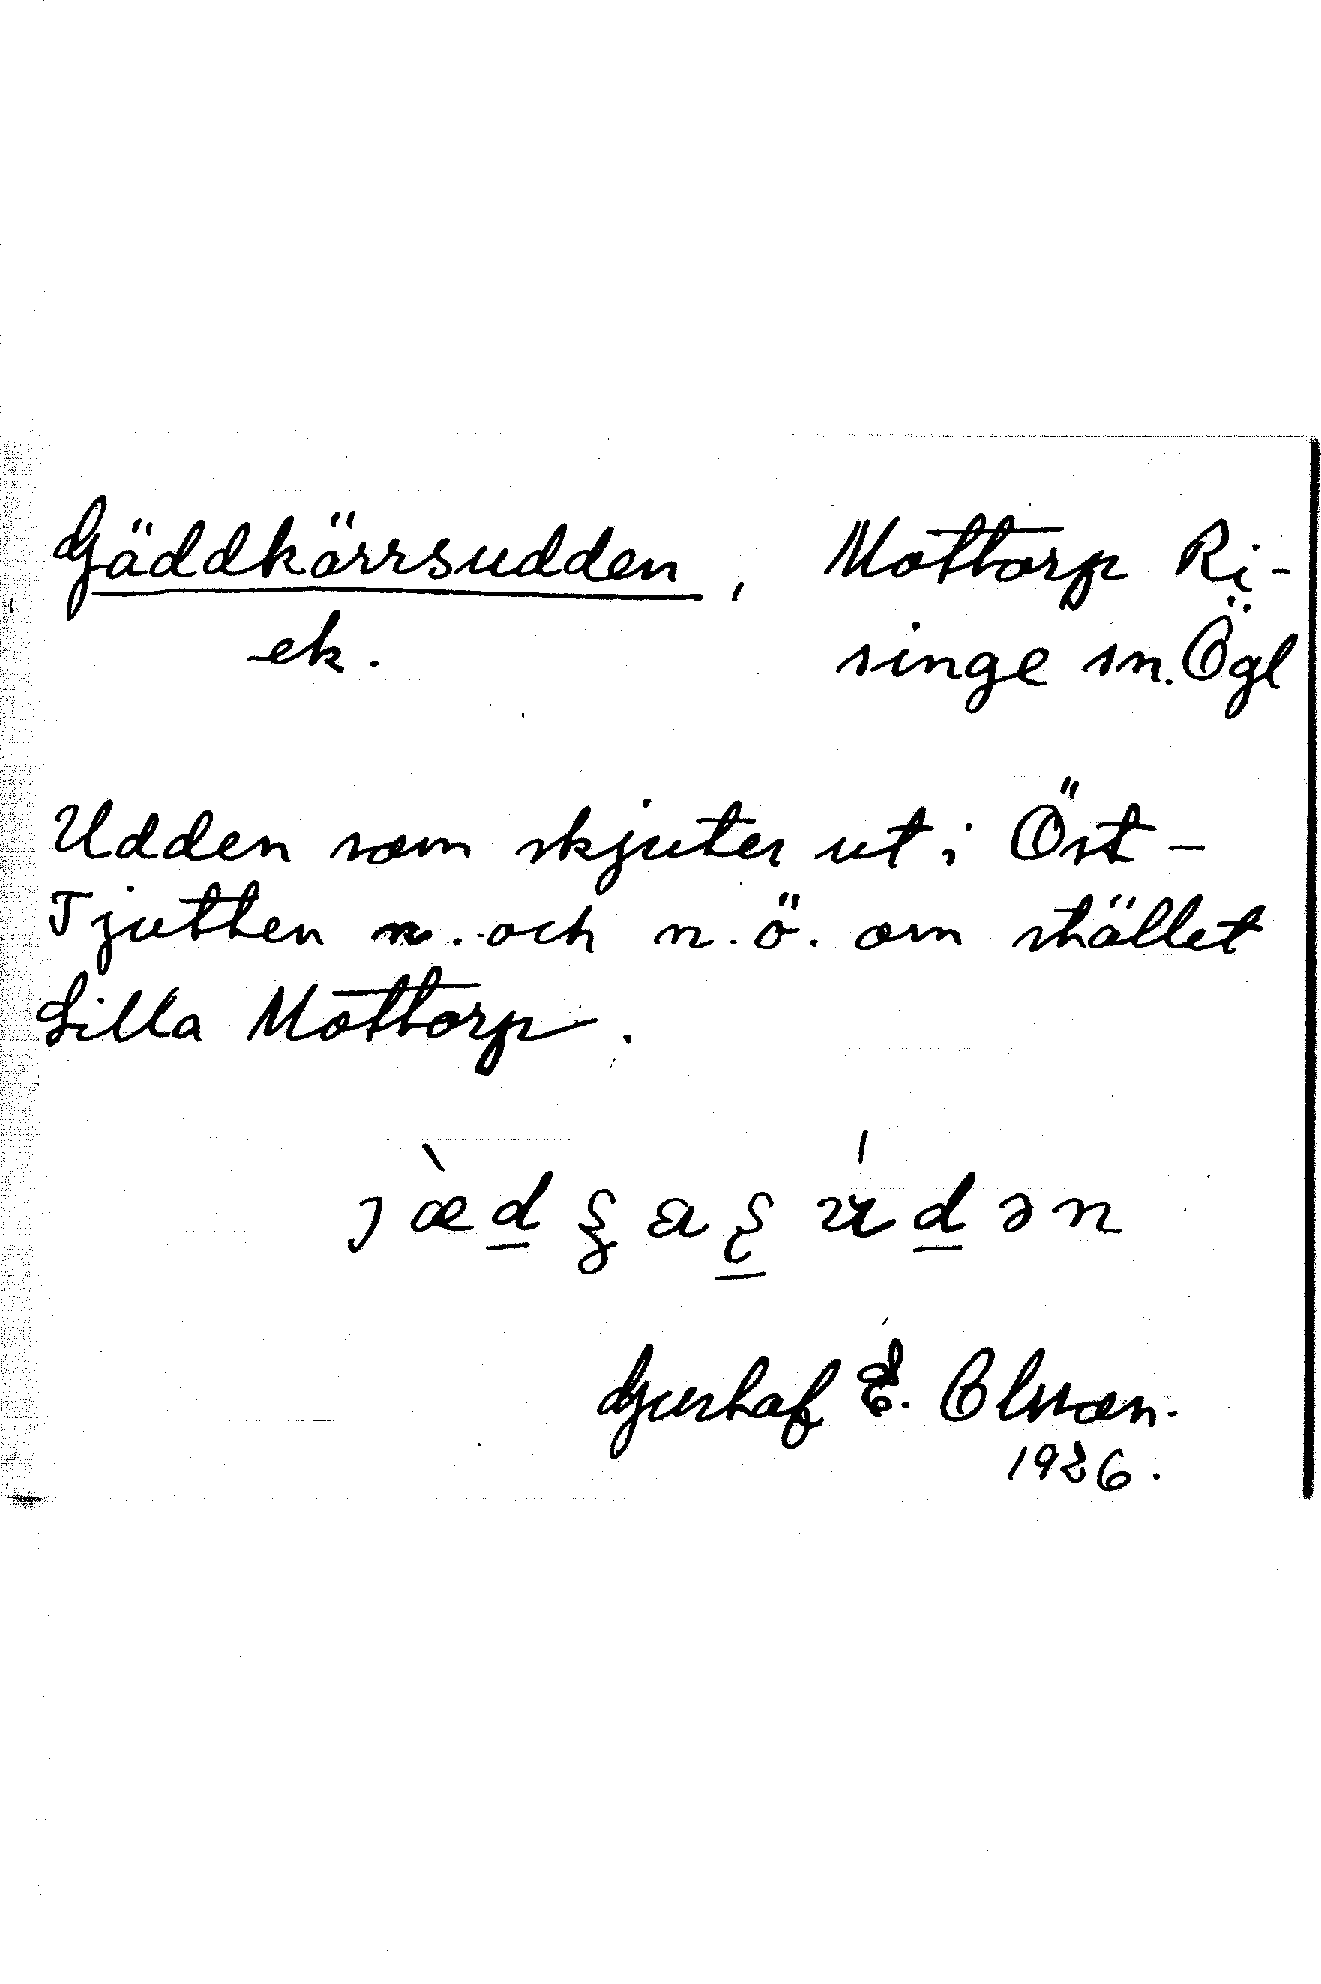 Gäddkärrsudden, Mottorp Ri-
ek. singe sn. Ögl
Udden som skjuter ut i Öst-
Tjutten n. och n.ö. om stället
Lilla Mottorp.
Gustaf E. Olsson.
1926.